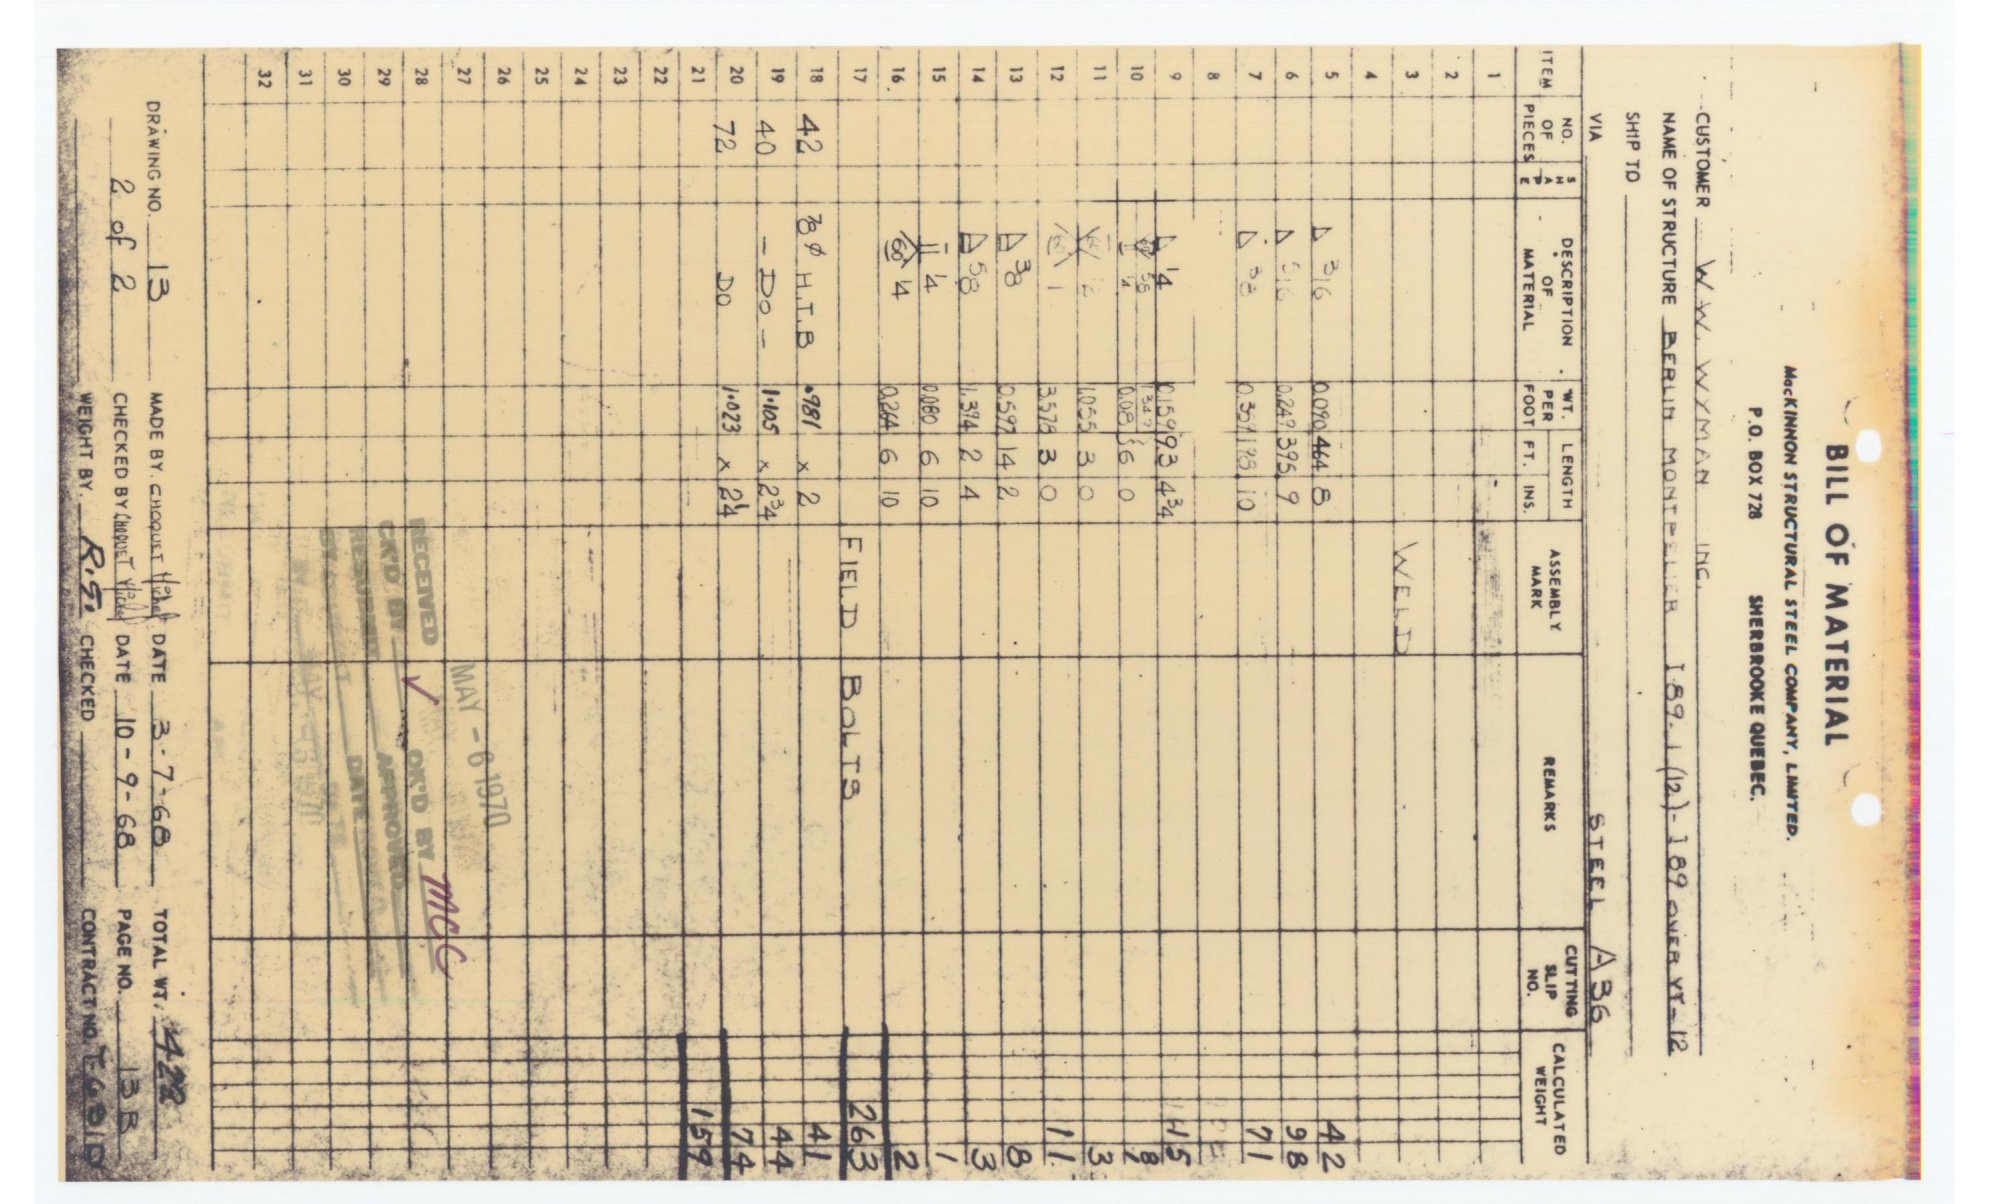 BILL OF MATERIAL
MacKINNON STRUCTURAL STEEL COMPANY, LIMITED.
P.O. BOX 728 SHERBROOKE QUEBEC.
CUSTOMER W.W. WYMAN INC.
NAME OF STRUCTURE BERLIN MONTPELIER I 89.1(12)-I 89 OVER VT-12
SHIP TO
VIA STEEL A36
ITEM NO. OF PIECES SHAPE DESCRIPTION OF MATERIAL WT. PER FOOT LENGTH FT. INS. ASSEMBLY MARK REMARKS CUTTING SLIP NO. CALCULATED WEIGHT
1
2
3 WELD
4
5 3/16 0.090 464 8 42
6 5/16 0.249 395 9 98
7 3/8 0.359 198 10 71
8
9 1/4 0.159 93 4 3/4 15
10 5/8 1/4 0.08 6 0 8
11 1/2 1.055 3 0 3
12 1 3.578 3 0 11
13 3/8 0.597 14 2 8
14 5/8 1.394 2 4 3
15 1/4 0.080 6 10 1
16 60 1/4 0.264 6 10 2
17 FIELD BOLTS 263
18 42 7/8 Ø H.T.B .981 x 2 41
19 40 - DO - 1.105 x 2 3/4 44
20 72 DO 1.023 x 2 1/4 74
21 159
22
23
24
25
26
27
28
29
30
31
32
MAY - 6 1970
RECEIVED
CK'D BY OK'D BY MCC
RESUBMIT APPROVED
DATE
DRAWING NO. 13 MADE BY. CHOQUET Michel DATE 3-7-68 TOTAL WT. 422
2 of 2 CHECKED BY CHOQUET Michel DATE 10-9-68 PAGE NO. 13 B
WEIGHT BY. R.S. CHECKED CONTRACT NO.